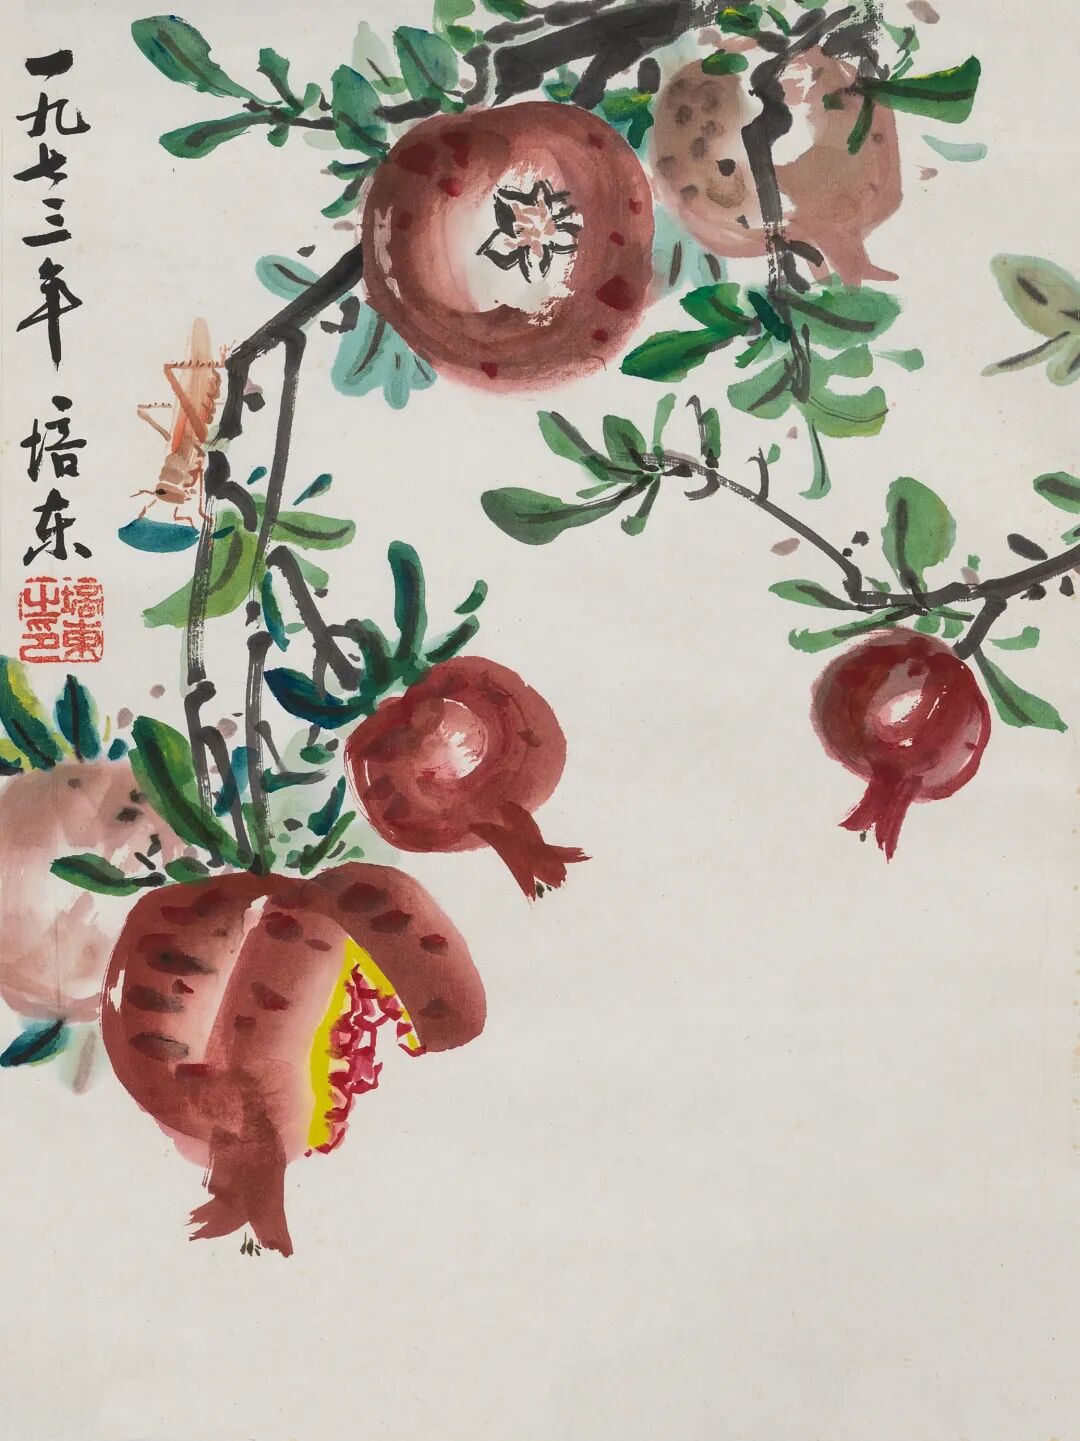 一九七三年 培东
培東之印